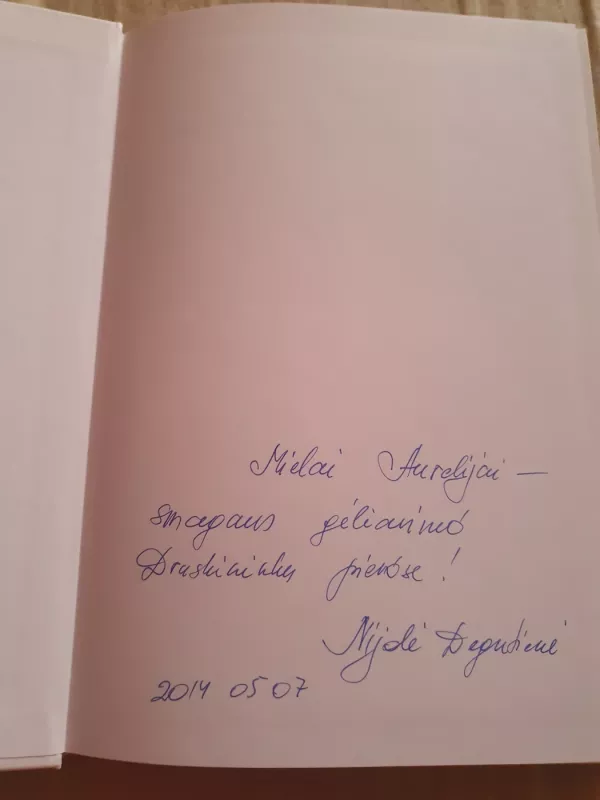 Mielai Aurelijai –
smagaus gėliavimo
Druskininkų pievose!
Nijolė Degutienė
2014 05 07